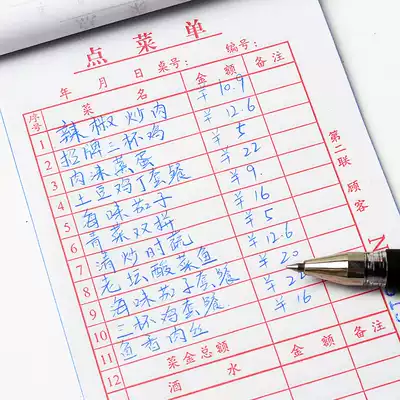 点菜单
年 月 日 桌号： 编号：
序号 菜 名 金 额 备 注
1 辣椒炒肉 ¥10.9
2 招牌三杯鸡 ¥12.6
3 肉沫蒸蛋 ¥5
4 土豆鸡丁套餐 ¥22
5 海味茄子 ¥9.
6 青菜双拼 ¥16
7 清炒时蔬 ¥5
8 老坛酸菜鱼 ¥12.6
9 海味茄子套餐 ¥20
10 三杯鸡套餐 ¥2
11 鱼香肉丝 ¥16
12
菜金总额 金 额 备 注
酒 水
第二联 顾客